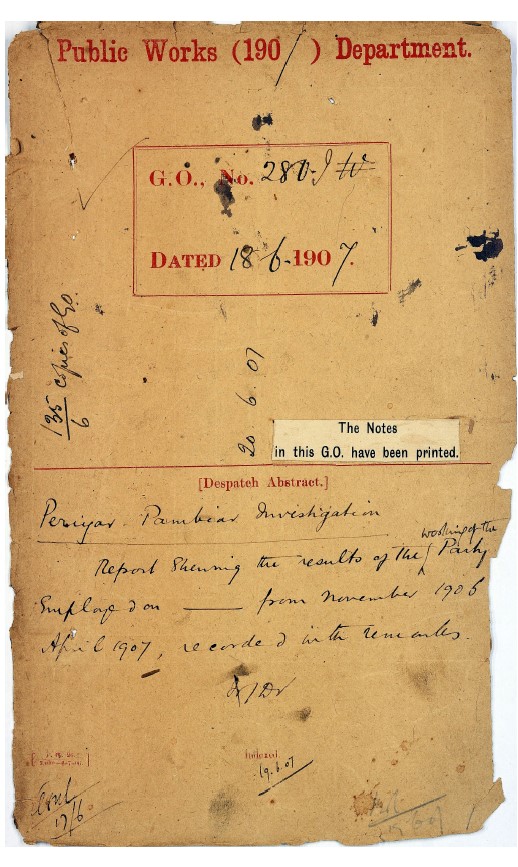 Public Works (190/) Department.
G.O., No. 280-I W
DATED 18-6-1907.
135 copies of G.O.
6
20 6. 07
The Notes
in this G.O. have been printed.
[Despatch Abstract.]
Periyar Pambiar Investigation
working of the
Report Shewing the results of the Party
Employed on —— from November 1906
April 1907, recorded with remarks.
Indexed
19.6.07
17/6